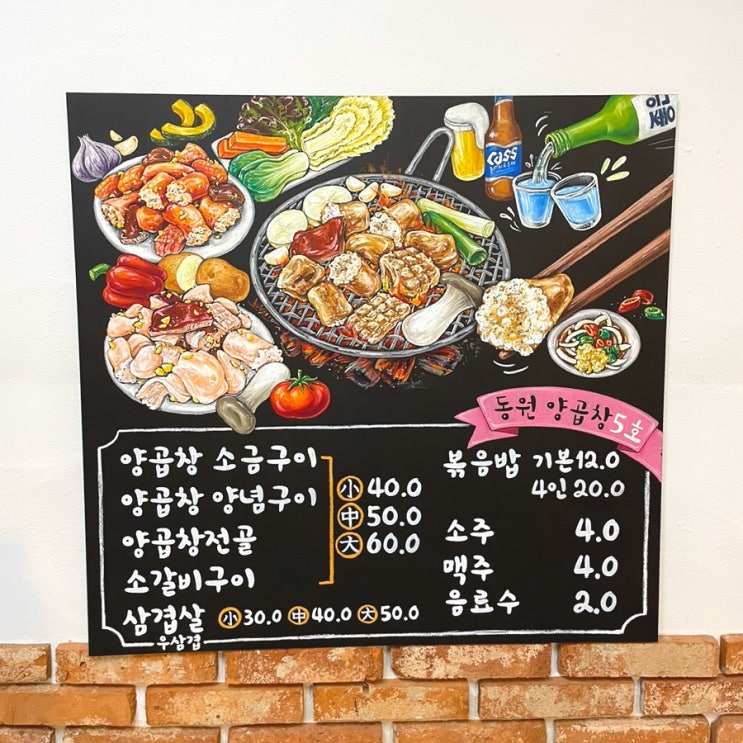 Cass
동원 양곱창 5호
양곱창 소금구이
양곱창 양념구이
양곱창전골
소갈비구이
小 40.0
中 50.0
大 60.0
삼겹살 小 30.0 中 40.0 大 50.0
우삼겹
볶음밥 기본 12.0
4인 20.0
소주 4.0
맥주 4.0
음료수 2.0